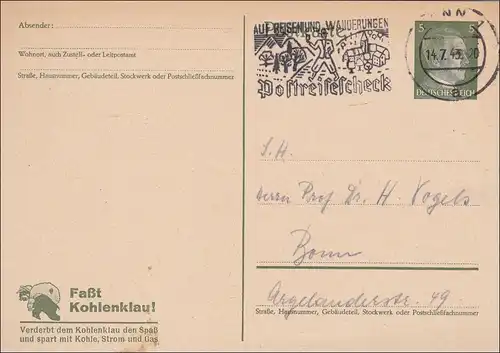 Absender:
Wohnort, auch Zustell- oder Leitpostamt
Straße, Hausnummer, Gebäudeteil, Stockwerk oder Postschließfachnummer
AUF REISEN UND WANDERUNGEN
Postreisescheck
NN 1
14.7.43.-20
5 5
DEUTSCHES REICH
S. H.
Herrn Prof Dr. H. Vogels
Bonn
Argelanderstr. 49
Straße, Hausnummer, Gebäudeteil, Stockwerk oder Postschließfachnummer
Faßt
Kohlenklau!
Verderbt dem Kohlenklau den Spaß
und spart mit Kohle, Strom und Gas